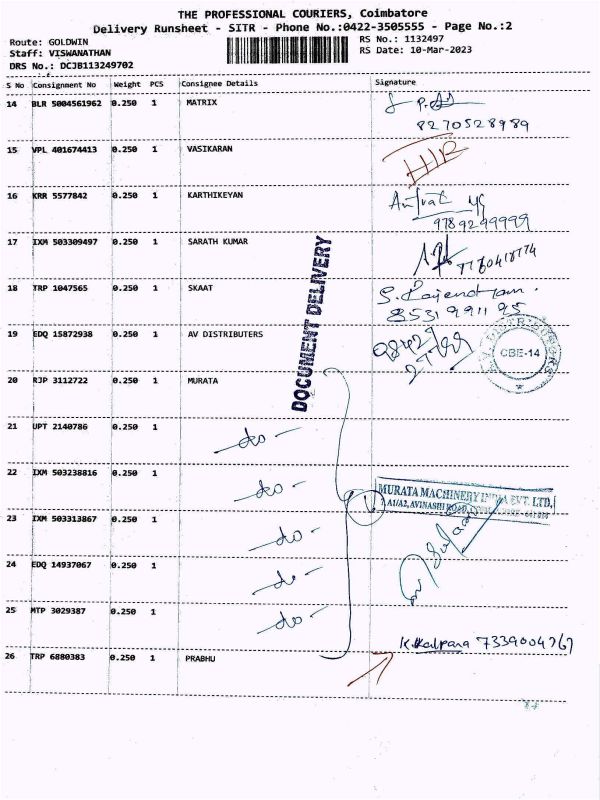 THE PROFESSIONAL COURIERS, Coimbatore
Delivery Runsheet - SITR - Phone No.:0422-3505555 - Page No.:2
Route: GOLDWIN RS No.: 1132497
Staff: VISWANATHAN RS Date: 10-Mar-2023
DRS No.: DCJB113249702
S No Consignment No Weight PCS Consignee Details Signature
14 BLR 5004561962 0.250 1 MATRIX
8270528989
15 VPL 401674413 0.250 1 VASIKARAN
16 KRR 5577842 0.250 1 KARTHIKEYAN
9789299999
17 IXM 503309497 0.250 1 SARATH KUMAR
18 TRP 1047565 0.250 1 SKAAT S. Rajendran.
8531991195
19 EDQ 15872938 0.250 1 AV DISTRIBUTERS
A.V. DISTRIBUTORS
CBE-14
DOCUMENT DELIVERY
20 RJP 3112722 0.250 1 MURATA
21 UPT 2140786 0.250 1
-do-
22 IXM 503238816 0.250 1
-do-
MURATA MACHINERY INDIA PVT. LTD.,
AVINASHI ROAD,
23 IXM 503313867 0.250 1
-do-
24 EDQ 14937067 0.250 1
-do-
25 MTP 3029387 0.250 1
-do-
K. Kalpana 7339004767
26 TRP 6880383 0.250 1 PRABHU